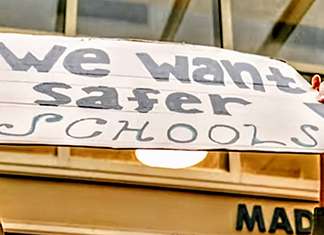 We want
safer
SCHOOLS
MAD